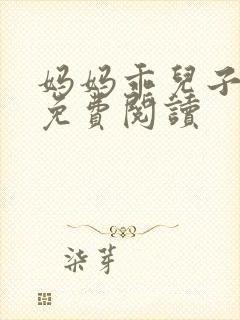 妈妈乖兒子
免費閱讀
柒芽